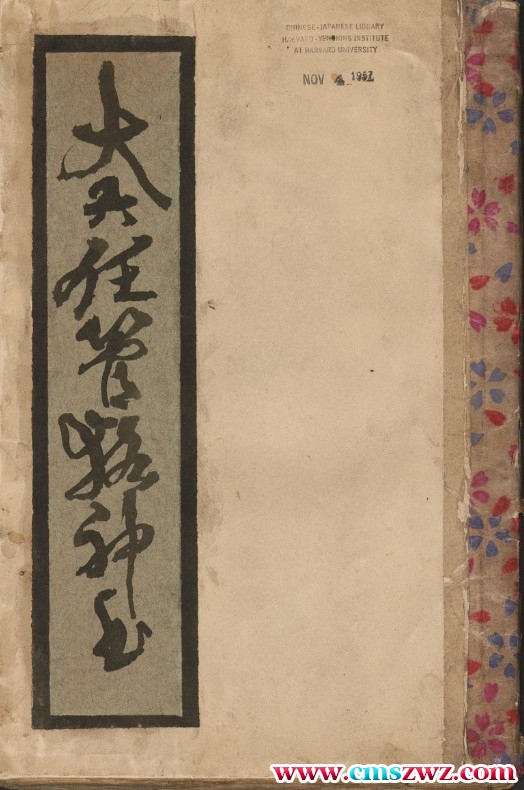 大六任管輅神書
CHINESE-JAPANESE LIBRARY
HARVARD-YENCHING INSTITUTE
AT HARVARD UNIVERSITY
NOV 4 1957
www.cmszwz.com